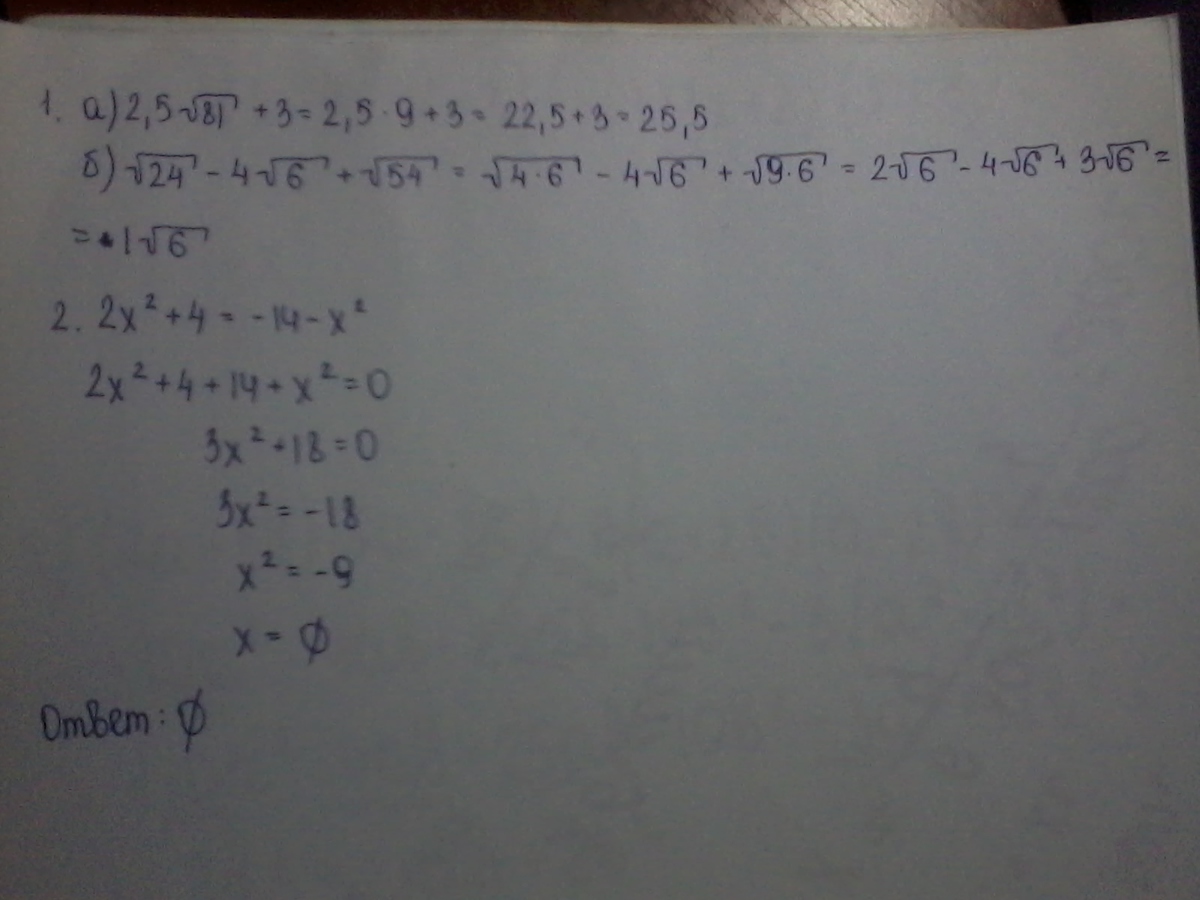 1. а) 2,5√81 + 3 = 2,5 · 9 + 3 = 22,5 + 3 = 25,5
б) √24 - 4√6 + √54 = √4·6 - 4√6 + √9·6 = 2√6 - 4√6 + 3√6 =
= 1√6
2. 2x² + 4 = -14 - x²
2x² + 4 + 14 + x² = 0
3x² + 18 = 0
3x² = -18
x² = -9
x = ∅
Ответ: ∅